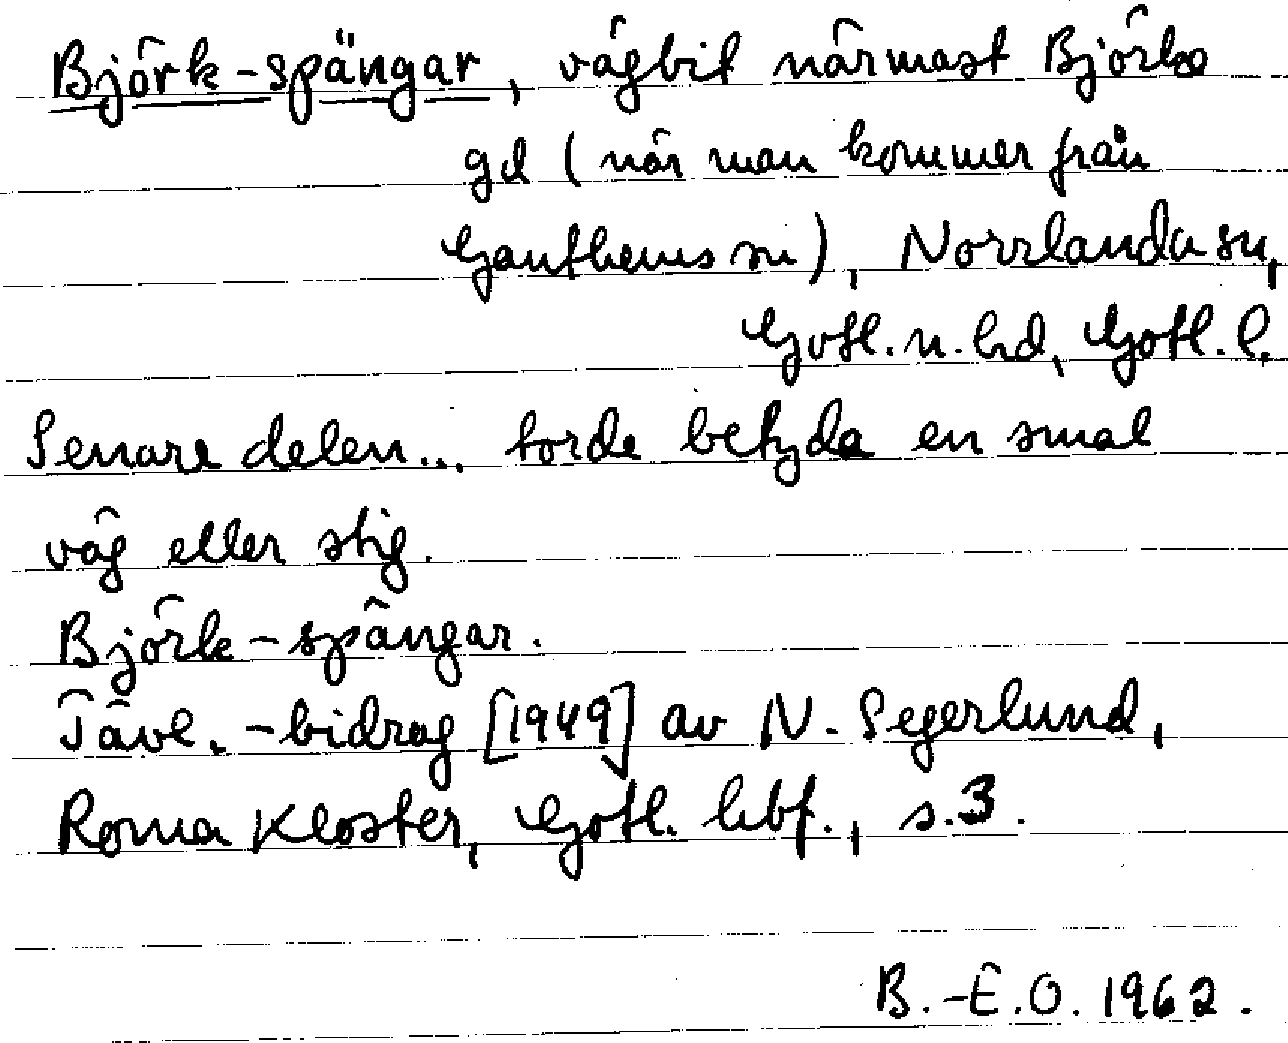 Björk-spängar, vägbit närmast Björke
gd (när man kommer från
Ganthems sn), Norrlanda sn,
Gotl. n. hd, Gotl. l.
Senare delen... torde betyda en smal
väg eller stig.
Björk-spängar.
Tävl.-bidrag [1949] av N. Segerlund,
Roma Kloster, Gotl. hbf., s. 3.
B.-E.O. 1962.